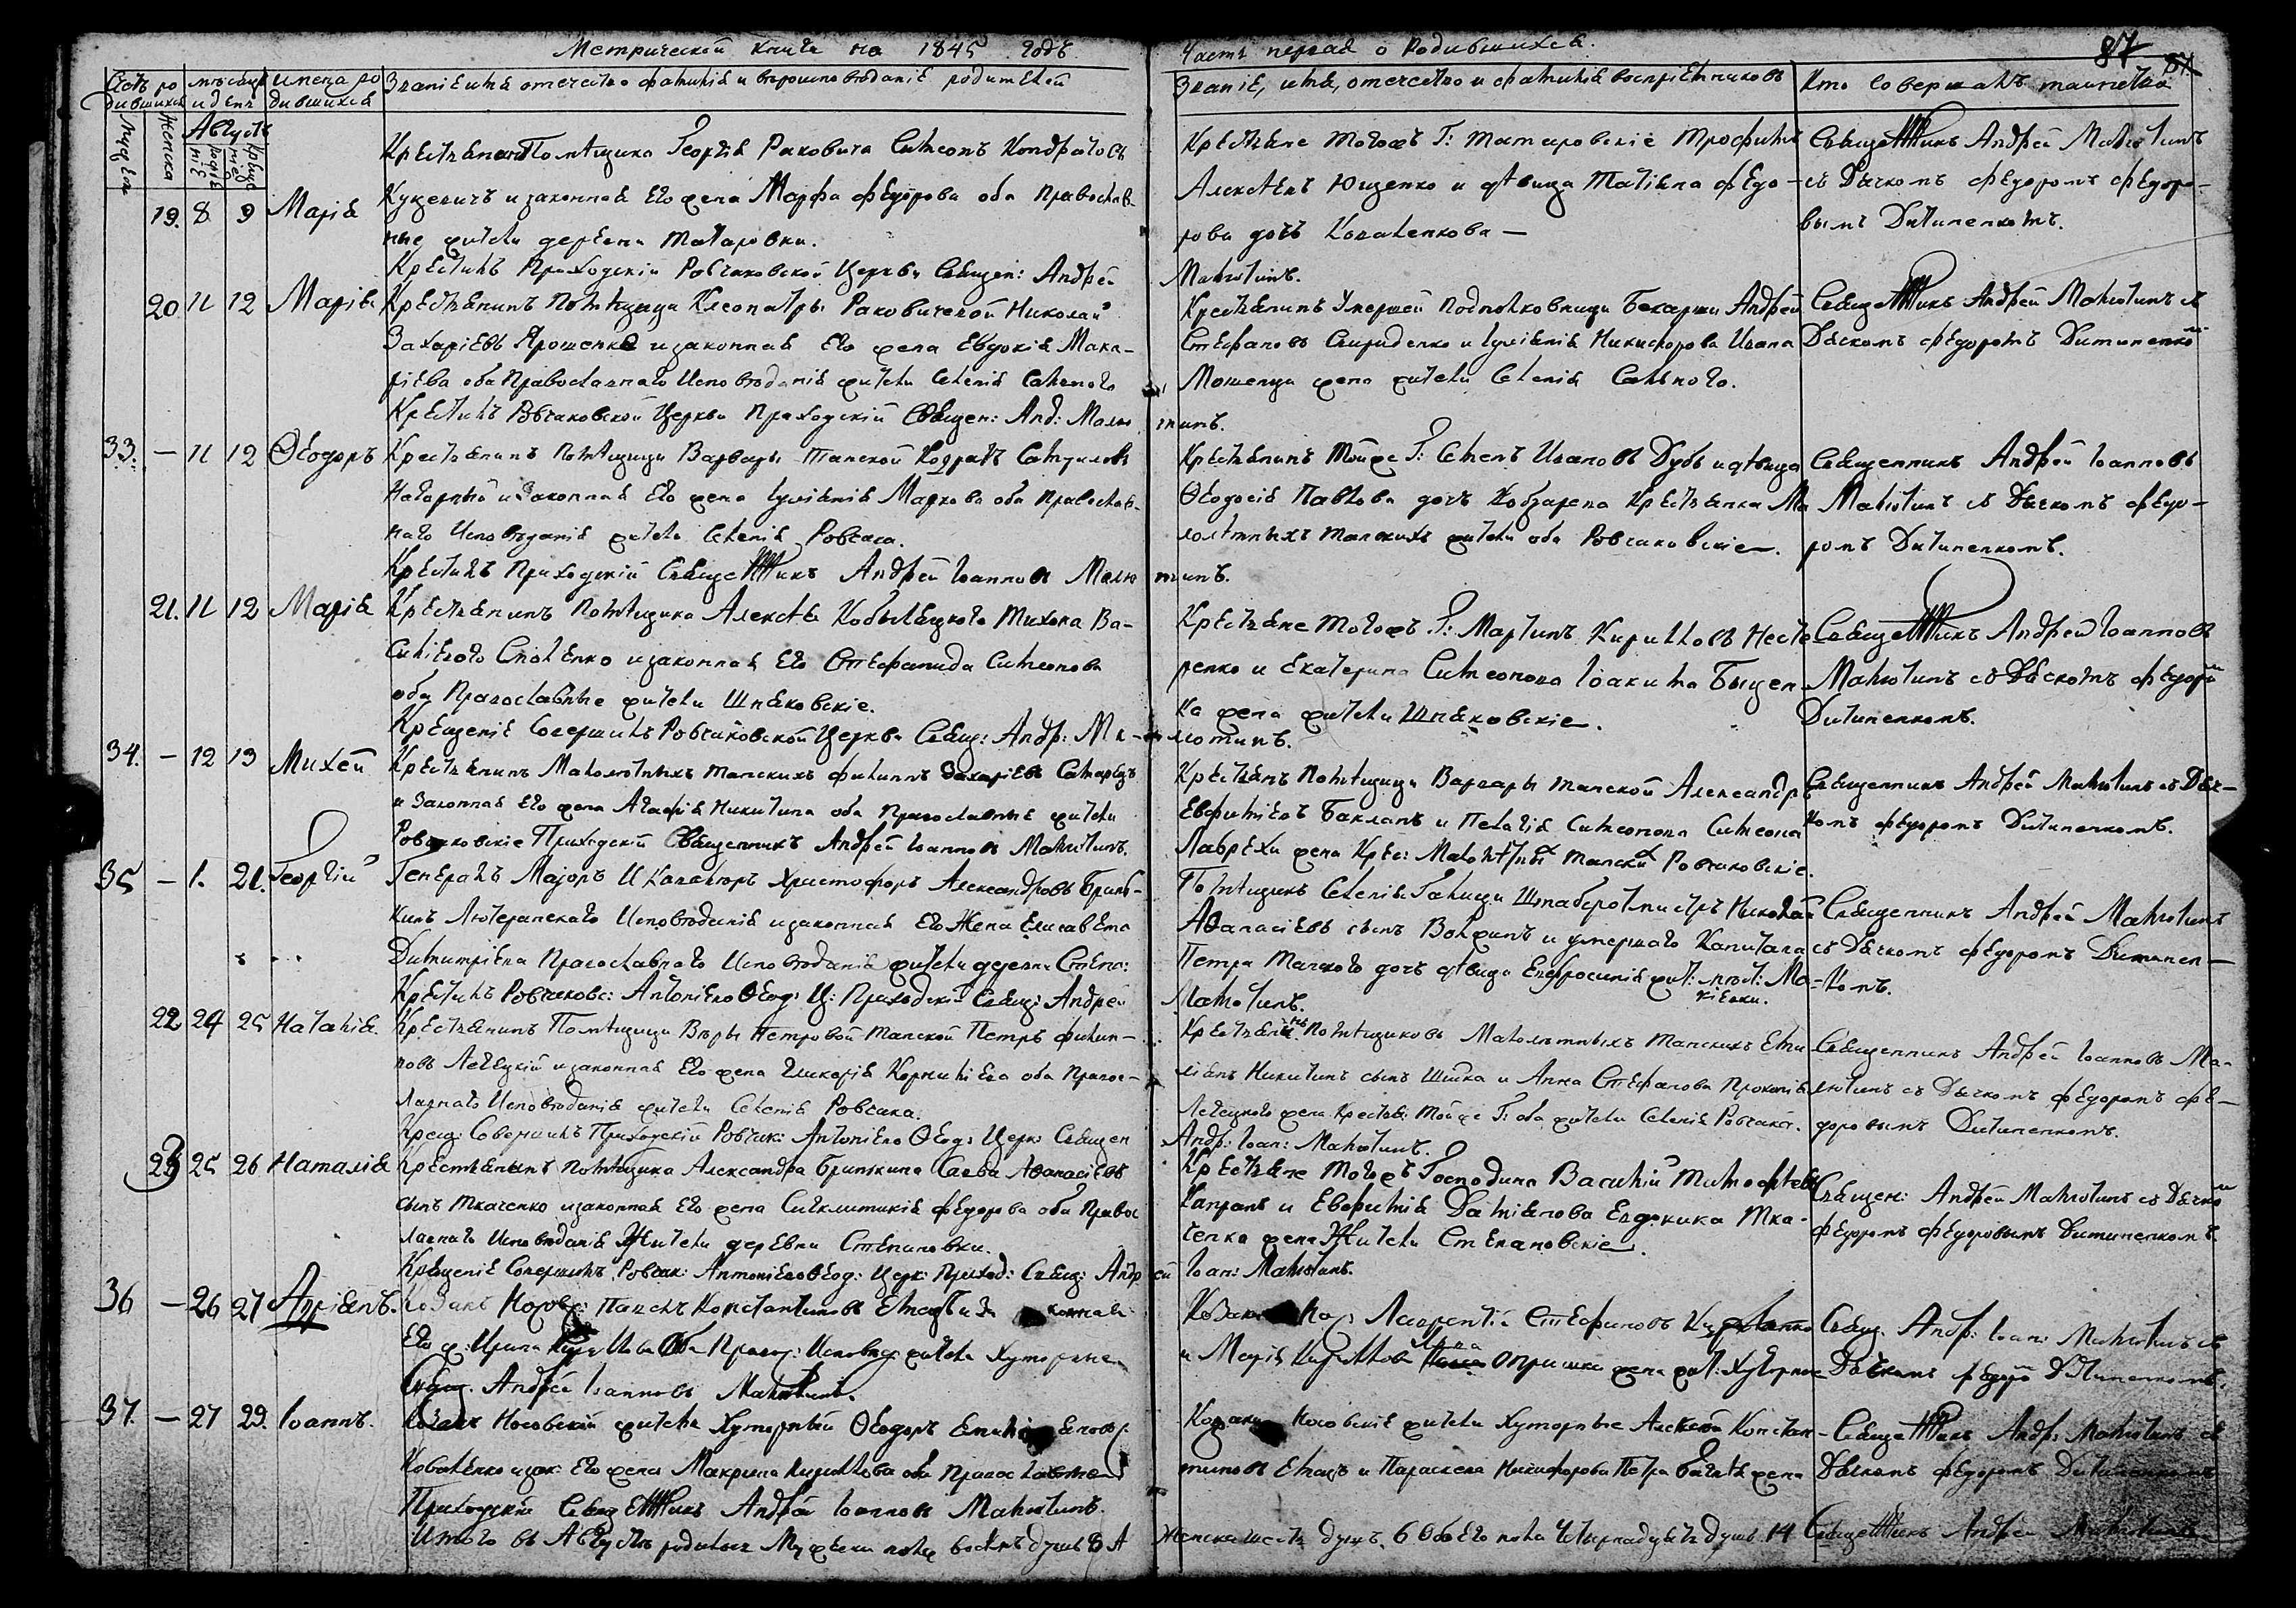 Метрической книги на 1845 годъ
Часть первая о родившихся.
87
Счетъ родившихся
мѣсяцъ и день
имена родившихся
Званіе имя отечество фамилія и вѣроисповѣданіе родителей
Званіе, имя, отечество и фамилія воспріемниковъ
Кто совершалъ таинство
Мужеска
Женска
Августъ
рожденіе
крещеніе
19. 8 9 Марія
Помѣщика Георгія Раковича Симеонъ Кондратовъ
и законная его жена Марфа Федорова оба православ-
ные жители деревни Татаровки.
Крестилъ Приходскій Ровчаковской Церкви Священ: Андрей
Малютинъ.
Крестьяне тогожъ Г: Татаровскіе Трофимъ
Алексѣевъ Ющенко и дѣвица Татіана Федо-
рова дочь Коваленкова —
Священникъ Андрей Малютинъ
съ Дьячкомъ Федоромъ Федоро-
вымъ Дитиненкомъ.
20 11 12 Марія
Крестьянинъ помѣщицы Клеопатры Раковичевой Николай
Захаріевъ Ярошенко и законная его жена Евдокія Мака-
ріева оба Православнаго Исповѣданія жители Селенія
Крестилъ Ровчаковской Церкви Приходскій Священ: Анд: Малю
тинъ.
Крестьянинъ Умершей Подполковницы Андрей
Стефановъ Свириденко и Іуліанія Никифорова Ивана
жена жители Селенія
Священникъ Андрей Малютинъ съ
Дьячкомъ Федоромъ Дитиненко
33. — 11 12 Ѳеодоръ
Крестьянинъ помѣщицы Варвары Танской
и законная его жена Іуліанія Маркова оба Православ-
наго Исповѣданія жители Селенія Ровчака.
Крестилъ Приходскій Священникъ Андрей Іоанновъ Малю
тинъ.
Крестьянинъ тойже Г: Семенъ Ивановъ Дубъ и дѣвица
Ѳеодосія Павлова дочь Кобзарева Крестьянка Ма
лолѣтныхъ Танскихъ жители оба Ровчаковскіе.
Священникъ Андрей Іоанновъ
Малютинъ съ Дьячкомъ Федо-
ромъ Дитиненкомъ.
21. 11 12 Марія
Крестьянинъ помѣщика Алексѣя Тихона Ва-
силіевого и законная его Стефанида Симеонова
оба Православные жители Шпаковскіе.
Крещеніе совершилъ Ровчаковской Церкви Свящ: Андр: Ма-
лютинъ.
Крестьяне тогожъ Г: Мартинъ Кирилловъ Несте
ренко и Екатерина Симеонова Іоакима
жена жители Шпаковскіе.
Священникъ Андрей Іоанновъ
Малютинъ съ Дьячкомъ Федоро
Дитиненкомъ.
34. — 12 13 Михей
Крестьянинъ Малолѣтныхъ Танскихъ Филиппъ Захаріевъ
и законная его жена Агафія Никитина оба Православные жители
Ровчаковскіе Приходскій Священникъ Андрей Іоанновъ Малютинъ.
Крестьянъ помѣщицы Варвары Танской Александръ
Евфиміевъ Бакланъ и Пелагія Симеонова Симеона
Лаврехи жена Крес: Малолѣтны Тански Ровчаковскіе.
Священникъ Андрей Малютинъ съ Дьяч-
комъ Федоромъ Дитиненкомъ.
35 — 1. 21. Георгій
Генералъ Маіоръ И Кавалеръ Христофоръ Александровъ Бринк-
кинъ Лютеранскаго Исповѣданія и законная его Жена Елисавета
Димитріева Православнаго Исповѣданія жители деревни Степа:
Крестилъ Ровчаковс: Антоніево Ѳеод: Ц: Приходскій Свящ: Андрей
Малютинъ.
Помѣщикъ Селенія Галицы Штабсротмистръ Николай
Аѳанасіевъ сынъ и умершаго Капитана
Петра Танского дочь дѣвица Евфросинія жит: мѣст: Ма-
кіевки.
Священникъ Андрей Малютинъ
съ Дьячкомъ Федоромъ Дитинен-
комъ.
22 24 25 Наталія
Крестьянинъ Помѣщицы Вѣры Петровой Танской Петръ Филип-
повъ Лечецкій и законная его жена Гликерія Корниліева оба Правос-
лавнаго Исповѣданія жители Селенія Ровчака.
Крещ: Совершилъ Приходскій Ровчак: Антоніево Ѳеод: Церк: Священ
Андр: Іоан: Малютинъ.
Крестьяне помѣщиковъ Малолѣтныхъ Танскихъ Еми
ліанъ Никитинъ сынъ Шишка и Анна Стефанова Прокопія
Лечецкого жена Крестья: тойже Г: оба жители Селенія Ровчака.
Священникъ Андрей Іоанновъ Ма-
лютинъ съ Дьячкомъ Федоромъ Фе-
доровымъ Дитиненкомъ.
23 25 26 Наталія
Крестьянинъ помѣщика Александра Бринкина Савва Аѳанасіевъ
сынъ Ткаченко и законная его жена Синклитикія Федорова оба Правос
лавнаго Исповѣданія Жители деревни Степановки.
Крещеніе Совершилъ Ровчак: Антоніево Ѳеод: Церк: Приход: Свящ: Андрей
Іоан: Малютинъ.
Крестьяне тогожъ Господина Василій Тимофѣевъ
Капранъ и Евфимія Даміанова Евдокима Тка-
ченка жена Жители Степановскіе.
Священ: Андрей Малютинъ съ Дьячко
Федоромъ Федоровымъ Дитиненкомъ.
36 — 26 27 Адріанъ.
Козакъ Носов: Павелъ Константиновъ Емецъ и законная
его ж: Ирина оба Правос: Исповѣд: жители Хуторные
Свящ. Андрей Іоанновъ Малютинъ.
Лаврентій Стефановъ
и Марія Кириллова Опришка жена жит: Хуторные
Свящ. Андр: Іоан: Малютинъ съ
Дьячкомъ Федоро Дитиненкомъ.
37. — 27 29. Іоаннъ.
Козакъ Носовскій житель Хуторный Ѳеодоръ
Коваленко и зак: его жена Макрина Кириллова оба Православные
Приходскій Священникъ Андрей Іоанновъ Малютинъ.
Козаки Носовскіе жители Хуторные Алексѣй Констан-
тиновъ Емецъ и Параскева Никифорова Петра жена
Священникъ Андр: Малютинъ съ
Дьячкомъ Федоромъ Дитиненкомъ
Итого въ Августѣ родилось Мужеска пола восемь душъ 8 А
Женска шесть душъ. 6 Обоего пола Четырнадцать душъ 14 Священникъ Андрей Малютинъ